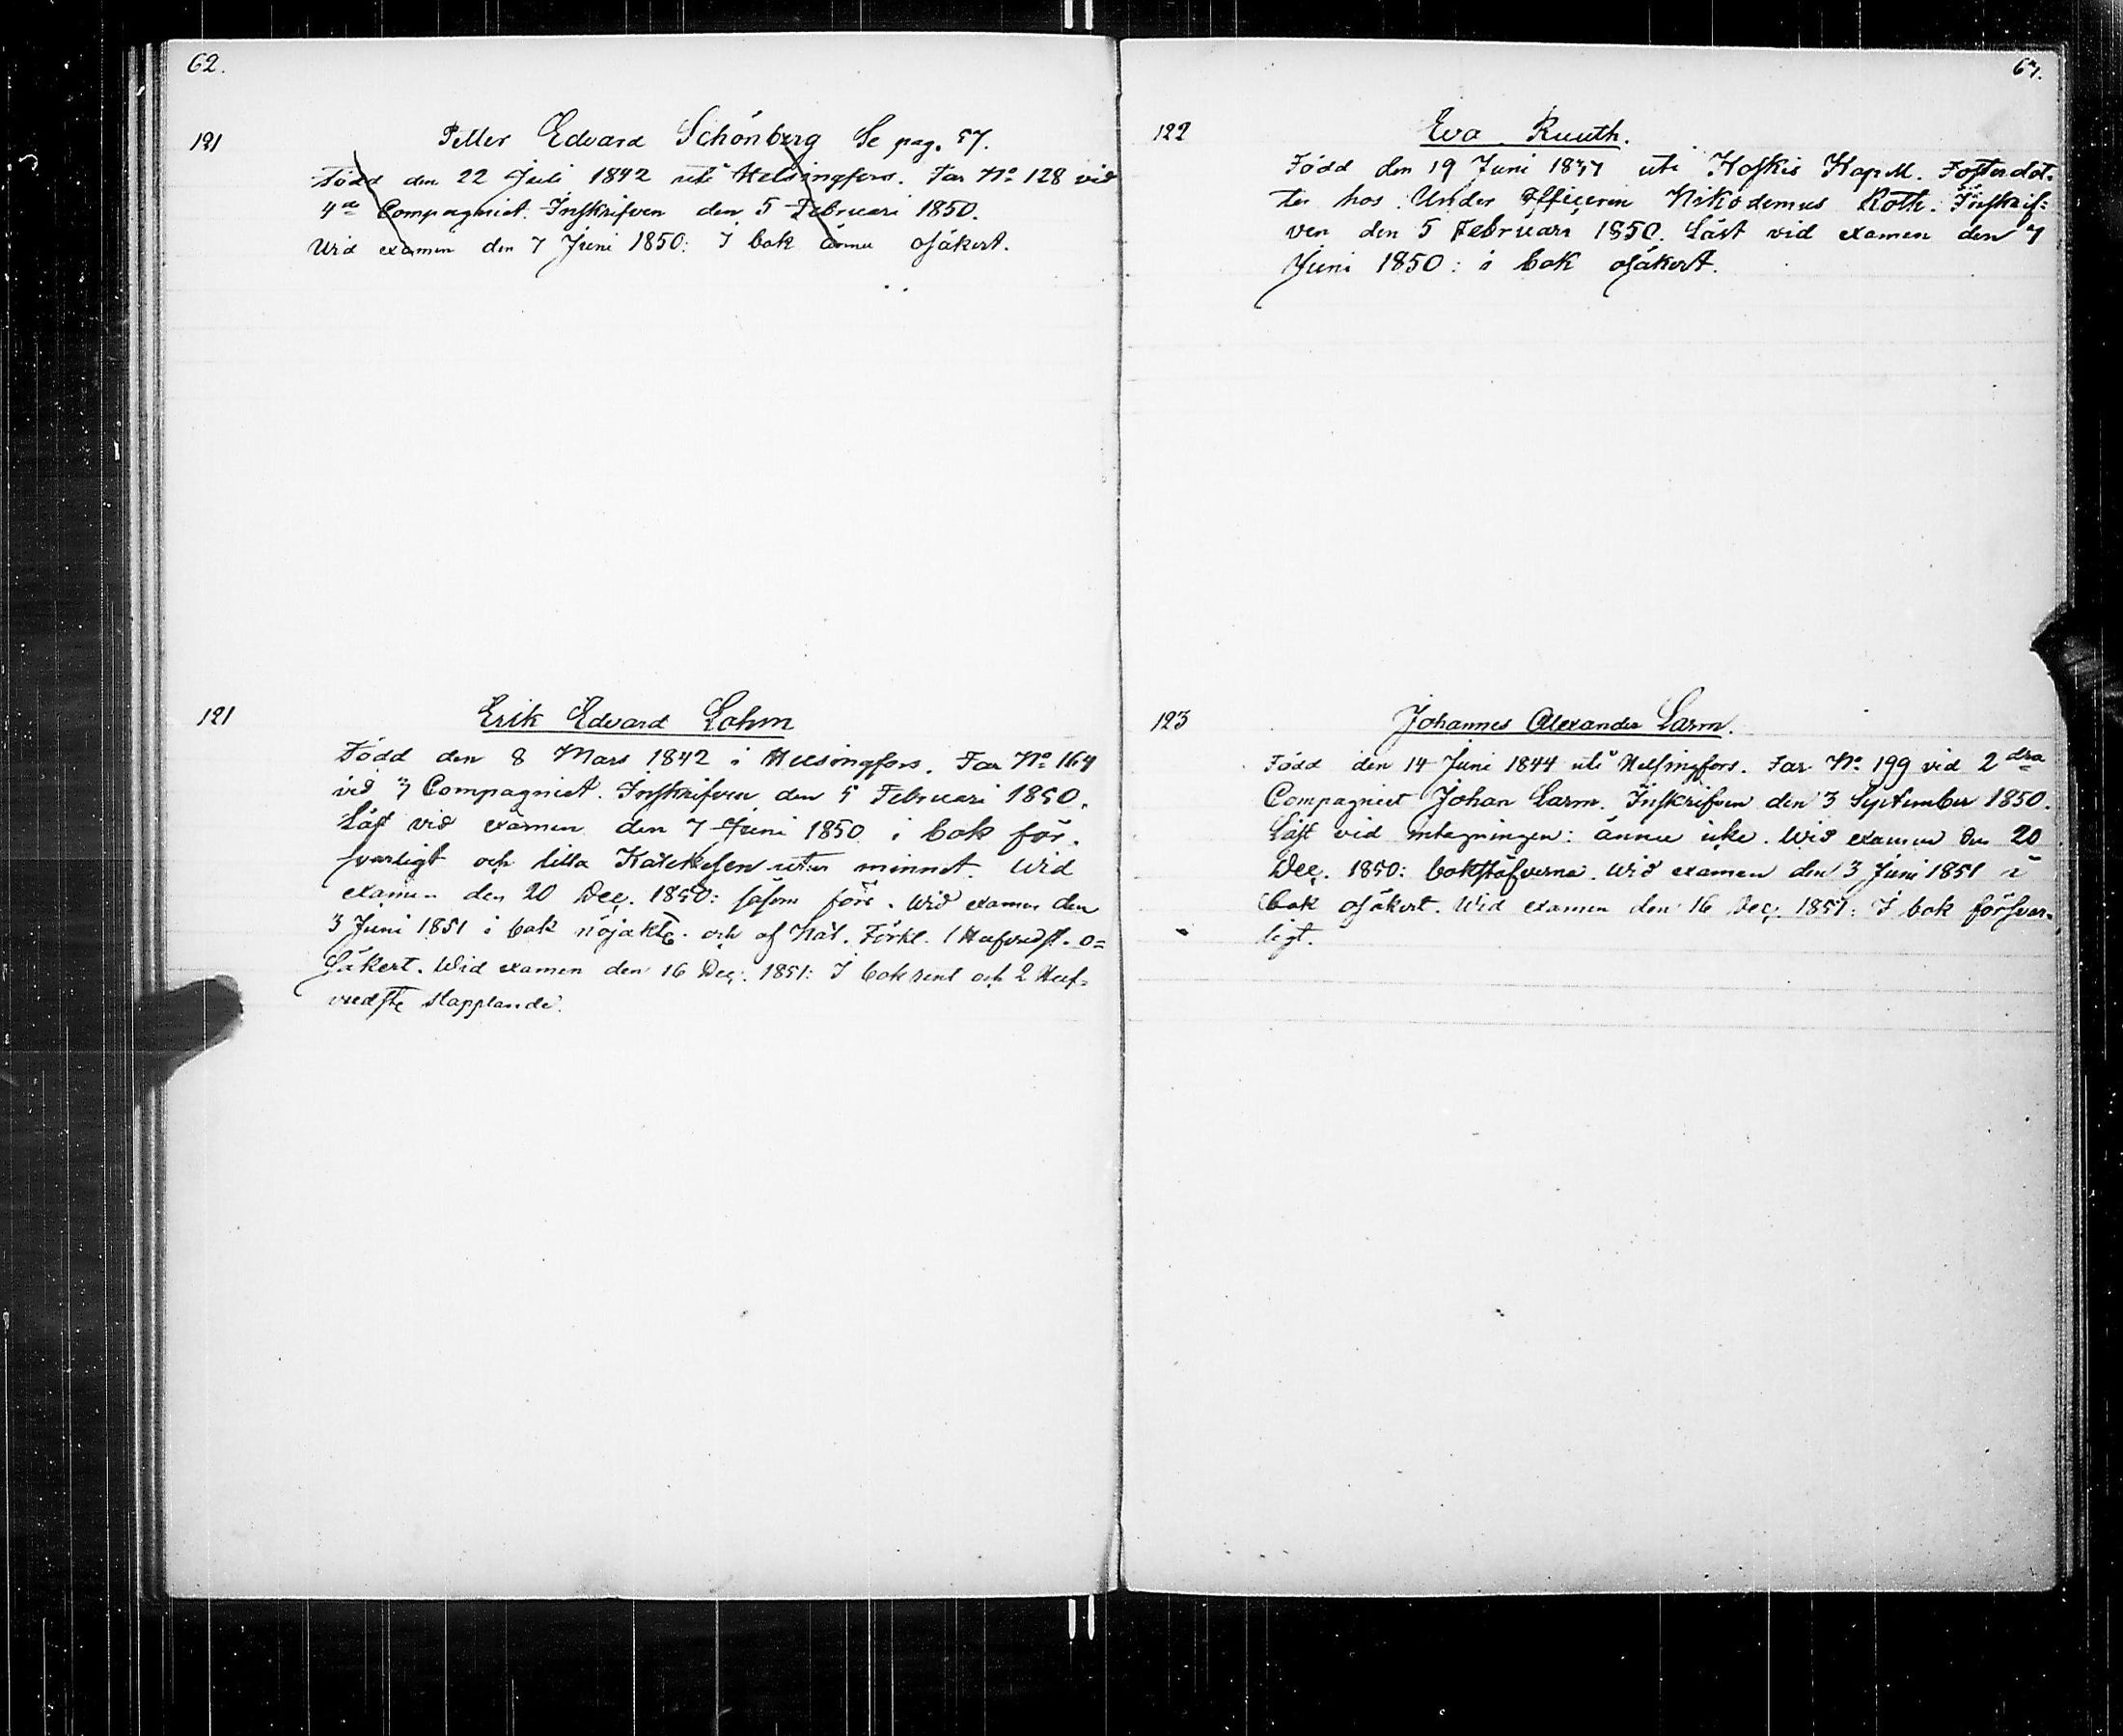 62.
121
Petter Edvard Schönberg Se pag. 57.
Född den 22 Juli 1842 uti Helsingfors. Far No 128 vid
4de Compagniet. Inskrifven den 5 Februari 1850.
Wid examen den 7 Juni 1850: I bok ännu osäkert.
121
Erik Edvard Lohm
Född den 8 Mars 1842 i Helsingfors. Far No 164
vid 3 Compagniet. Inskrifven den 5 Februari 1850.
Läst vid examen den 7 Juni 1850 i bok för-
svarligt och lilla Katekesen utur minnet. Wid
examen den 20 Dec. 1850: såsom förr. Wid examen den
3 Juni 1851 i bok nöjaktg. och af Kat. Förkl. 1 Hufvudst. o=
säkert. Wid examen den 16 Dec. 1851: I bok rent och 2 Huf=
vudste stapplande.
63.
122
Eva Ruuth.
Född den 19 Juni 1837 uti Hoskis Kapell. Fosterdot-
ter hos Under Officeren Nikodemus Roth. Inskrif=
ven den 5 Februari 1850. Läst vid examen den 7
Juni 1850: i bok osäkert.
123
Johannes Alexander Larm.
Född den 14 Juni 1844 uti Helsingfors. Far No 199 vid 2dra
Compagniet Johan Larm. Inskrifven den 3 September 1850.
Läst vid intagningen: ännu icke. Wid examen den 20
Dec. 1850: bokstäfverna. Wid examen den 3 Juni 1851 i
bok osäkert. Wid examen den 16 Dec. 1851: I bok försvar-
ligt.